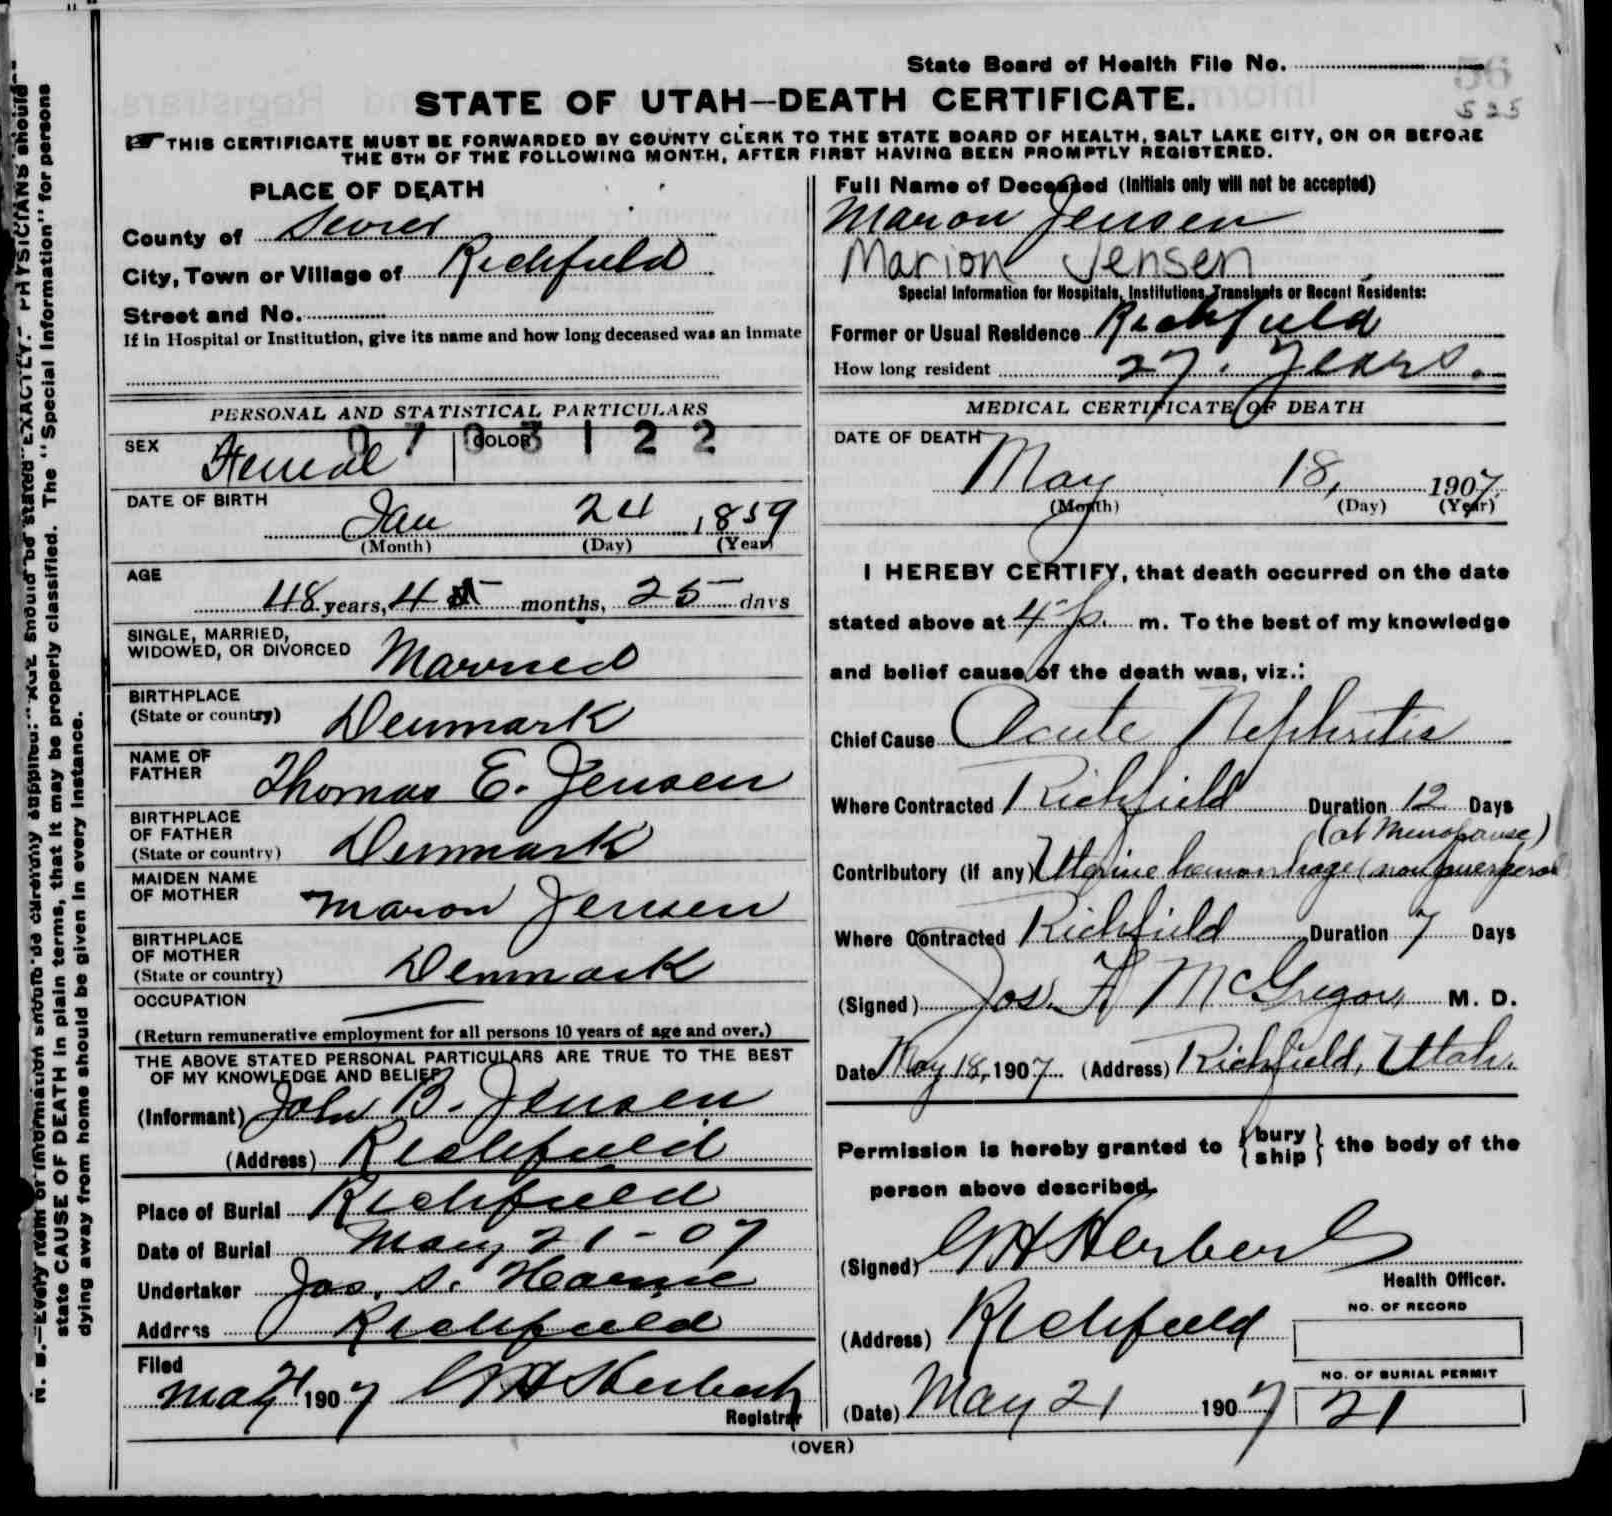 State Board of Health File No.
56
525
STATE OF UTAH—DEATH CERTIFICATE.
THIS CERTIFICATE MUST BE FORWARDED BY COUNTY CLERK TO THE STATE BOARD OF HEALTH, SALT LAKE CITY, ON OR BEFORE
THE 5TH OF THE FOLLOWING MONTH, AFTER FIRST HAVING BEEN PROMPTLY REGISTERED.
PLACE OF DEATH
County of Sevier
City, Town or Village of Richfield
Street and No.
If in Hospital or Institution, give its name and how long deceased was an inmate
PERSONAL AND STATISTICAL PARTICULARS
0703122
SEX Femal COLOR
DATE OF BIRTH
Jan 24 1859
(Month) (Day) (Year)
AGE
48 years, 4 months, 25 days
SINGLE, MARRIED,
WIDOWED, OR DIVORCED Married
BIRTHPLACE
(State or country) Denmark
NAME OF
FATHER Thomas E. Jensen
BIRTHPLACE
OF FATHER
(State or country) Denmark
MAIDEN NAME
OF MOTHER Maron Jensen
BIRTHPLACE
OF MOTHER
(State or country) Denmark
OCCUPATION
(Return remunerative employment for all persons 10 years of age and over.)
THE ABOVE STATED PERSONAL PARTICULARS ARE TRUE TO THE BEST
OF MY KNOWLEDGE AND BELIEF
(Informant) John B. Jensen
(Address) Richfield
Place of Burial Richfield
Date of Burial May 21-07
Undertaker Jas. S. Horne
Address Richfield
Filed
May 21 1907 G H Herbert
Registrar
Full Name of Deceased (Initials only will not be accepted)
Maron Jensen
Marion Jensen
Special Information for Hospitals, Institutions, Transients or Recent Residents:
Former or Usual Residence Richfield
How long resident 27. Years.
MEDICAL CERTIFICATE OF DEATH
DATE OF DEATH
May 18, 1907
(Month) (Day) (Year)
I HEREBY CERTIFY, that death occurred on the date
stated above at 4 p. m. To the best of my knowledge
and belief cause of the death was, viz.:
Chief Cause Acute Nephritis
Where Contracted Richfield Duration 12 Days
(at Menopause)
Contributory (if any) Uterine hemorrhage (non puerperal
Where Contracted Richfield Duration 7 Days
(Signed) Jos. F McGregor M. D.
Date May 18, 1907 (Address) Richfield, Utah.
Permission is hereby granted to {bury ship} the body of the
person above described.
(Signed) G H Herbert
Health Officer.
(Address) Richfield
NO. OF RECORD
NO. OF BURIAL PERMIT
(Date) May 21 1907 21
(OVER)
N. B.—Every item of information should be carefully supplied. AGE should be stated EXACTLY. PHYSICIANS should
state CAUSE OF DEATH in plain terms, that it may be properly classified. The "Special Information" for persons
dying away from home should be given in every instance.